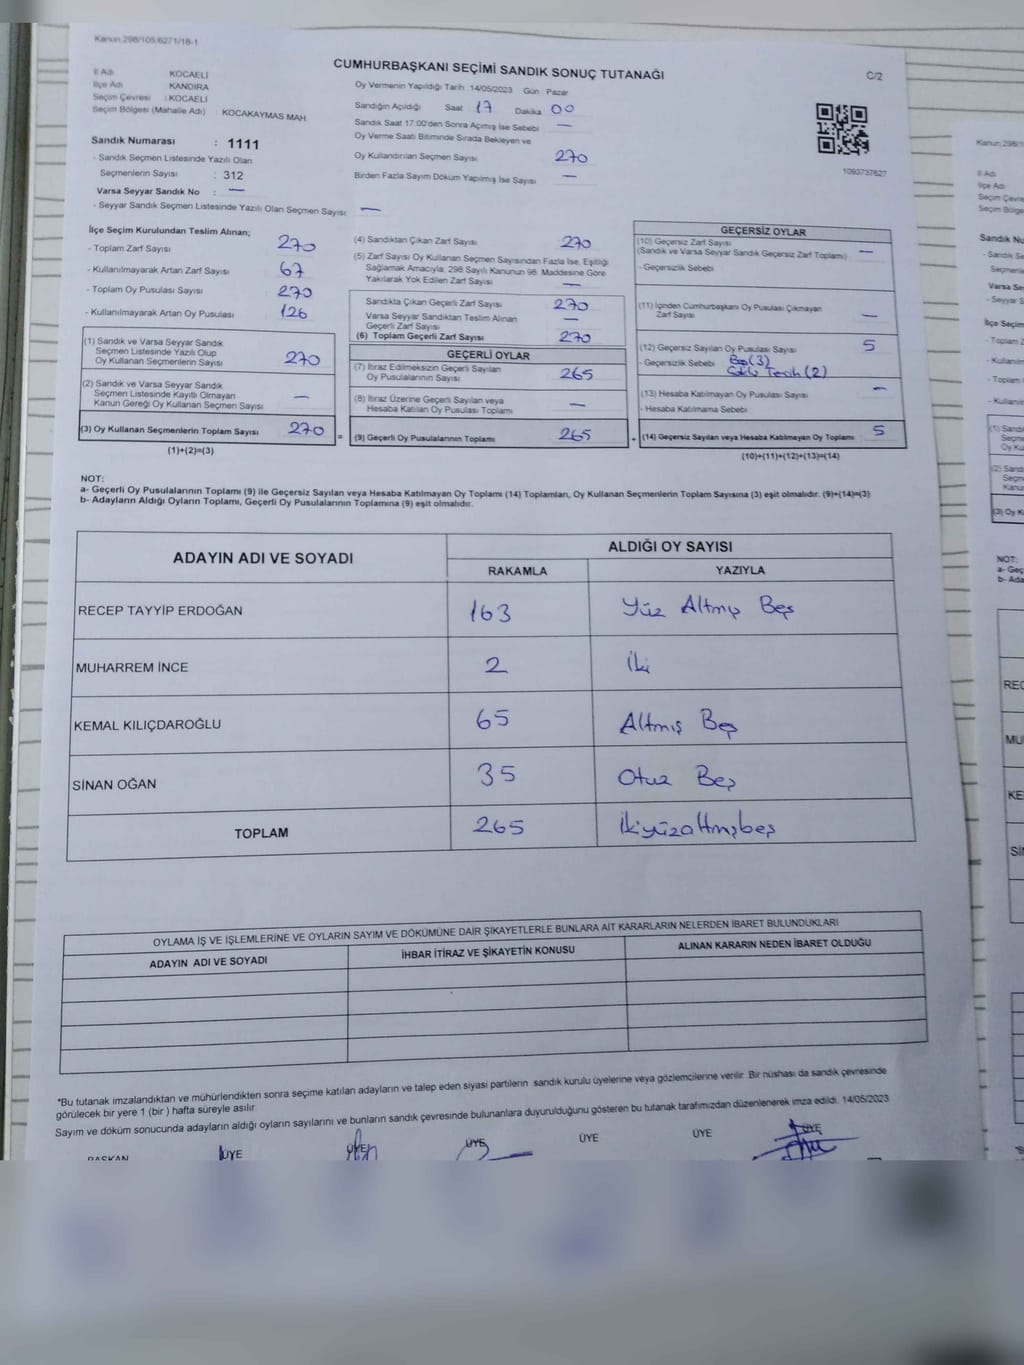 Kanun.298/105,6271/18-1
CUMHURBAŞKANI SEÇİMİ SANDIK SONUÇ TUTANAĞI
C/2
İl Adı KOCAELİ
İlçe Adı KANDIRA
Seçim Çevresi : KOCAELİ
Seçim Bölgesi (Mahalle Adı) : KOCAKAYMAS MAH.
Sandık Numarası : 1111
- Sandık Seçmen Listesinde Yazılı Olan
Seçmenlerin Sayısı : 312
Varsa Seyyar Sandık No : —
- Seyyar Sandık Seçmen Listesinde Yazılı Olan Seçmen Sayısı: —
Oy Vermenin Yapıldığı Tarih 14/05/2023 Gün: Pazar
Sandığın Açıldığı Saat 17 Dakika 00
Sandık Saat 17:00'den Sonra Açılmış İse Sebebi —
Oy Verme Saati Bitiminde Sırada Bekleyen ve
Oy Kullandırılan Seçmen Sayısı 270
Birden Fazla Sayım Döküm Yapılmış İse Sayısı —
1093737627
İlçe Seçim Kurulundan Teslim Alınan;
- Toplam Zarf Sayısı 270
- Kullanılmayarak Artan Zarf Sayısı 67
- Toplam Oy Pusulası Sayısı 270
- Kullanılmayarak Artan Oy Pusulası 126
(1) Sandık ve Varsa Seyyar Sandık
Seçmen Listesinde Yazılı Olup
Oy Kullanan Seçmenlerin Sayısı 270
(2) Sandık ve Varsa Seyyar Sandık
Seçmen Listesinde Kayıtlı Olmayan
Kanun Gereği Oy Kullanan Seçmen Sayısı —
(3) Oy Kullanan Seçmenlerin Toplam Sayısı 270 =
(1)+(2)=(3)
(4) Sandıktan Çıkan Zarf Sayısı 270
(5) Zarf Sayısı Oy Kullanan Seçmen Sayısından Fazla İse, Eşitliği
Sağlamak Amacıyla, 298 Sayılı Kanunun 98. Maddesine Göre
Yakılarak Yok Edilen Zarf Sayısı —
Sandıkta Çıkan Geçerli Zarf Sayısı 270
Varsa Seyyar Sandıktan Teslim Alınan
Geçerli Zarf Sayısı —
(6) Toplam Geçerli Zarf Sayısı 270
GEÇERLİ OYLAR
(7) İtiraz Edilmeksizin Geçerli Sayılan
Oy Pusulalarının Sayısı 265
(8) İtiraz Üzerine Geçerli Sayılan veya
Hesaba Katılan Oy Pusulası Toplamı —
(9) Geçerli Oy Pusulalarının Toplamı 265 +
GEÇERSİZ OYLAR
(10) Geçersiz Zarf Sayısı
(Sandık ve Varsa Seyyar Sandık Geçersiz Zarf Toplamı) —
- Geçersizlik Sebebi
(11) İçinden Cumhurbaşkanı Oy Pusulası Çıkmayan
Zarf Sayısı —
(12) Geçersiz Sayılan Oy Pusulası Sayısı 5
- Geçersizlik Sebebi Boş(3)
Tercih (2)
(13) Hesaba Katılmayan Oy Pusulası Sayısı —
- Hesaba Katılmama Sebebi
(14) Geçersiz Sayılan veya Hesaba Katılmayan Oy Toplamı 5
(10)+(11)+(12)+(13)=(14)
NOT:
a- Geçerli Oy Pusulalarının Toplamı (9) ile Geçersiz Sayılan veya Hesaba Katılmayan Oy Toplamı (14) Toplamları, Oy Kullanan Seçmenlerin Toplam Sayısına (3) eşit olmalıdır. (9)+(14)=(3)
b- Adayların Aldığı Oyların Toplamı, Geçerli Oy Pusulalarının Toplamına (9) eşit olmalıdır.
ADAYIN ADI VE SOYADI ALDIĞI OY SAYISI
RAKAMLA YAZIYLA
RECEP TAYYİP ERDOĞAN 163 Yüz Altmış Beş
MUHARREM İNCE 2 İki
KEMAL KILIÇDAROĞLU 65 Altmış Beş
SİNAN OĞAN 35 Otuz Beş
TOPLAM 265 İkiyüzaltmışbeş
OYLAMA İŞ VE İŞLEMLERİNE VE OYLARIN SAYIM VE DÖKÜMÜNE DAİR ŞİKAYETLERLE BUNLARA AİT KARARLARIN NELERDEN İBARET BULUNDUKLARI
ADAYIN ADI VE SOYADI İHBAR İTİRAZ VE ŞİKAYETİN KONUSU ALINAN KARARIN NEDEN İBARET OLDUĞU
*Bu tutanak imzalandıktan ve mühürlendikten sonra seçime katılan adayların ve talep eden siyasi partilerin sandık kurulu üyelerine veya gözlemcilerine verilir. Bir nüshası da sandık çevresinde
görülecek bir yere 1 (bir) hafta süreyle asılır.
Sayım ve döküm sonucunda adayların aldığı oyların sayılarını ve bunların sandık çevresinde bulunanlara duyurulduğunu gösteren bu tutanak tarafımızdan düzenlenerek imza edildi. 14/05/2023
BAŞKAN ÜYE ÜYE ÜYE ÜYE ÜYE ÜYE